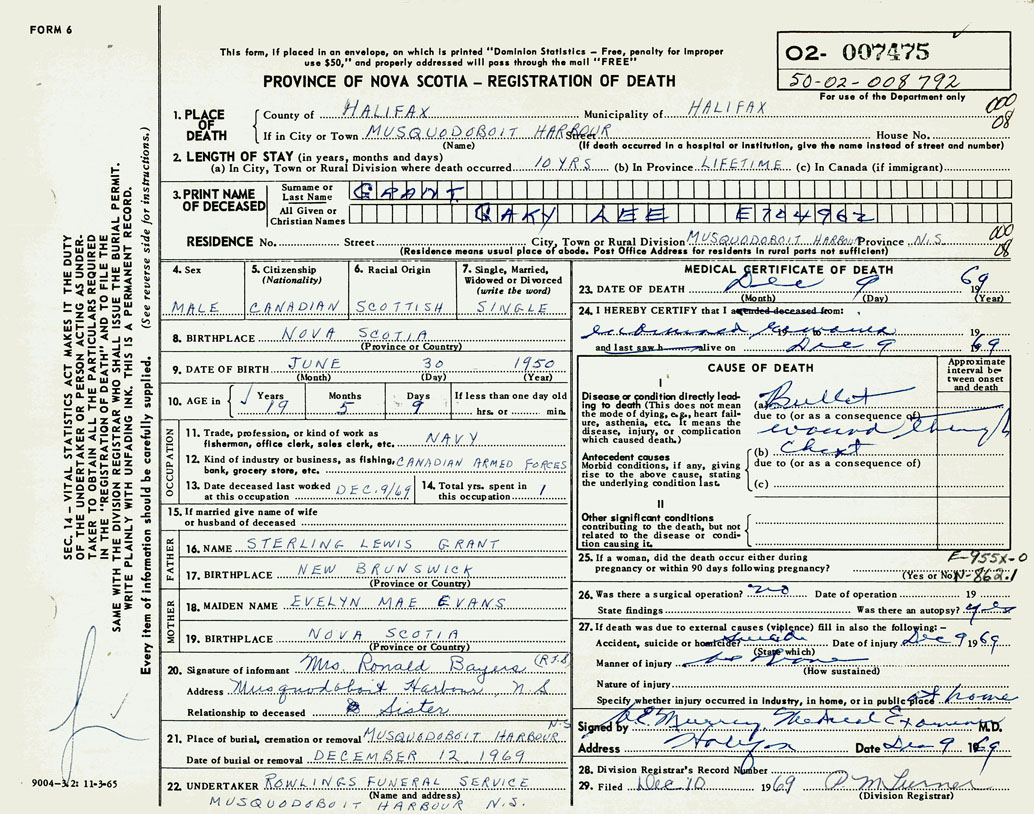 FORM 6
This form, if placed in an envelope, on which is printed "Dominion Statistics — Free, penalty for improper
use $50," and properly addressed will pass through the mail "FREE"
PROVINCE OF NOVA SCOTIA – REGISTRATION OF DEATH
02- 007475
50-02-008792
For use of the Department only
1. PLACE OF DEATH
County of HALIFAX Municipality of HALIFAX 000
If in City or Town MUSQUODOBOIT HARBOUR Street House No. 08
(Name) (If death occurred in a hospital or institution, give the name instead of street and number)
2. LENGTH OF STAY (in years, months and days)
(a) In City, Town or Rural Division where death occurred 10 YRS (b) In Province LIFETIME (c) In Canada (if immigrant)
3. PRINT NAME OF DECEASED
Surname or Last Name GRANT
All Given or Christian Names GARY LEE E704962
RESIDENCE No. Street City, Town or Rural Division MUSQUODOBOIT HARBOUR Province N.S. 000
(Residence means usual place of abode. Post Office Address for residents in rural parts not sufficient) 08
4. Sex MALE
5. Citizenship (Nationality) CANADIAN
6. Racial Origin SCOTTISH
7. Single, Married, Widowed or Divorced (write the word) SINGLE
8. BIRTHPLACE NOVA SCOTIA
(Province or Country)
9. DATE OF BIRTH JUNE 30 1950
(Month) (Day) (Year)
10. AGE in Years 19 Months 5 Days 9 If less than one day old hrs. or min.
OCCUPATION
11. Trade, profession, or kind of work as NAVY
fisherman, office clerk, sales clerk, etc.
12. Kind of industry or business, as fishing, CANADIAN ARMED FORCES
bank, grocery store, etc.
13. Date deceased last worked at this occupation DEC. 9/69
14. Total yrs. spent in this occupation 1
15. If married give name of wife
or husband of deceased
FATHER
16. NAME STERLING LEWIS GRANT
17. BIRTHPLACE NEW BRUNSWICK
(Province or Country)
MOTHER
18. MAIDEN NAME EVELYN MAE EVANS
19. BIRTHPLACE NOVA SCOTIA
(Province or Country)
20. Signature of informant Mrs. Ronald Bayers
Address Musquodoboit Harbour N.S
Relationship to deceased Sister
21. Place of burial, cremation or removal MUSQUODOBOIT HARBOUR N.S
Date of burial or removal DECEMBER 12, 1969
22. UNDERTAKER ROWLINGS FUNERAL SERVICE
(Name and address)
MUSQUODOBOIT HARBOUR N.S.
MEDICAL CERTIFICATE OF DEATH
23. DATE OF DEATH Dec 9 1969
(Month) (Day) (Year)
24. I HEREBY CERTIFY that I attended deceased from:
examined remains 19 to 19
and last saw h alive on Dec 9 1969
CAUSE OF DEATH
Approximate interval between onset and death
I
Disease or condition directly leading to death (This does not mean the mode of dying, e.g., heart failure, asthenia, etc. It means the disease, injury, or complication which caused death.)
(a) Bullet
due to (or as a consequence of)
wound through
Antecedent causes
Morbid conditions, if any, giving rise to the above cause, stating the underlying condition last.
(b) Chest
due to (or as a consequence of)
(c)
II
Other significant conditions
contributing to the death, but not related to the disease or condition causing it.
25. If a woman, did the death occur either during E-955X-0
pregnancy or within 90 days following pregnancy? (Yes or No) N-862.1
26. Was there a surgical operation? no Date of operation 19
State findings Was there an autopsy? yes
27. If death was due to external causes (violence) fill in also the following:–
Accident, suicide or homicide? Suicide Date of injury Dec 9 1969
(State which)
Manner of injury as above
(How sustained)
Nature of injury
Specify whether injury occurred in Industry, in home, or in public place at home
Signed by Murray Medical Examiner M.D.
Address Halifax Date Dec 9 1969
28. Division Registrar's Record Number
29. Filed Dec 10 1969 P M Turner
(Division Registrar)
SEC. 14 – VITAL STATISTICS ACT MAKES IT THE DUTY
OF THE UNDERTAKER OR PERSON ACTING AS UNDER-
TAKER TO OBTAIN ALL THE PARTICULARS REQUIRED
IN THE "REGISTRATION OF DEATH" AND TO FILE THE
SAME WITH THE DIVISION REGISTRAR WHO SHALL ISSUE THE BURIAL PERMIT.
WRITE PLAINLY WITH UNFADING INK. THIS IS A PERMANENT RECORD.
Every item of information should be carefully supplied. (See reverse side for instructions.)
9004-3.2: 11-3-65